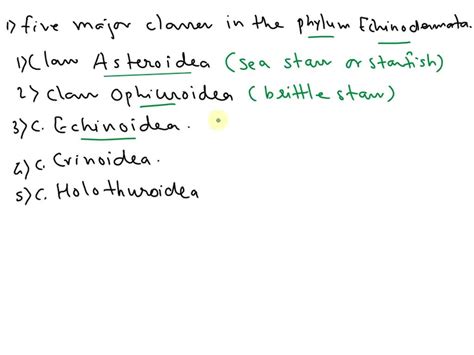 1) five major classes in the phylum Echinodermata.
1) Class Asteroidea (sea stars or starfish)
2) Class Ophiuroidea (brittle stars)
3) C. Echinoidea.
4) C. Crinoidea.
5) C. Holothuroidea